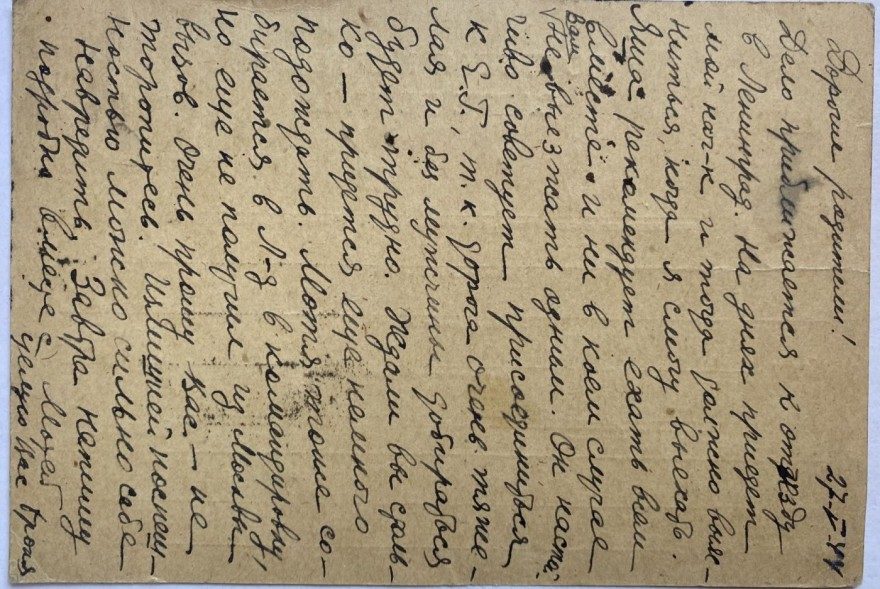 27-V-44
Дорогие родители!
Дело приближается к отъезду
в Ленинград. На днях приедет
мой нач-к и тогда должно выяс-
ниться, когда я смогу выехать.
Яша рекомендует ехать вам
вместе и ни в коем случае
Вам не выезжать одним. Он настой-
чиво советует присоединиться
к Е.Г., т.к. дорога очень тяже-
лая и без мужчины добираться
будет трудно. Ждали вы столь-
ко — придется еще немного
подождать. Мотя тоже со-
бирается в Л-д в командировку,
но еще не получил из Москвы
вызов. Очень прошу Вас — не
торопитесь. Излишней поспеш-
ностью можно сильно себе
навредить. Завтра напишу
подробно вместе с Мотей
Целую Вас